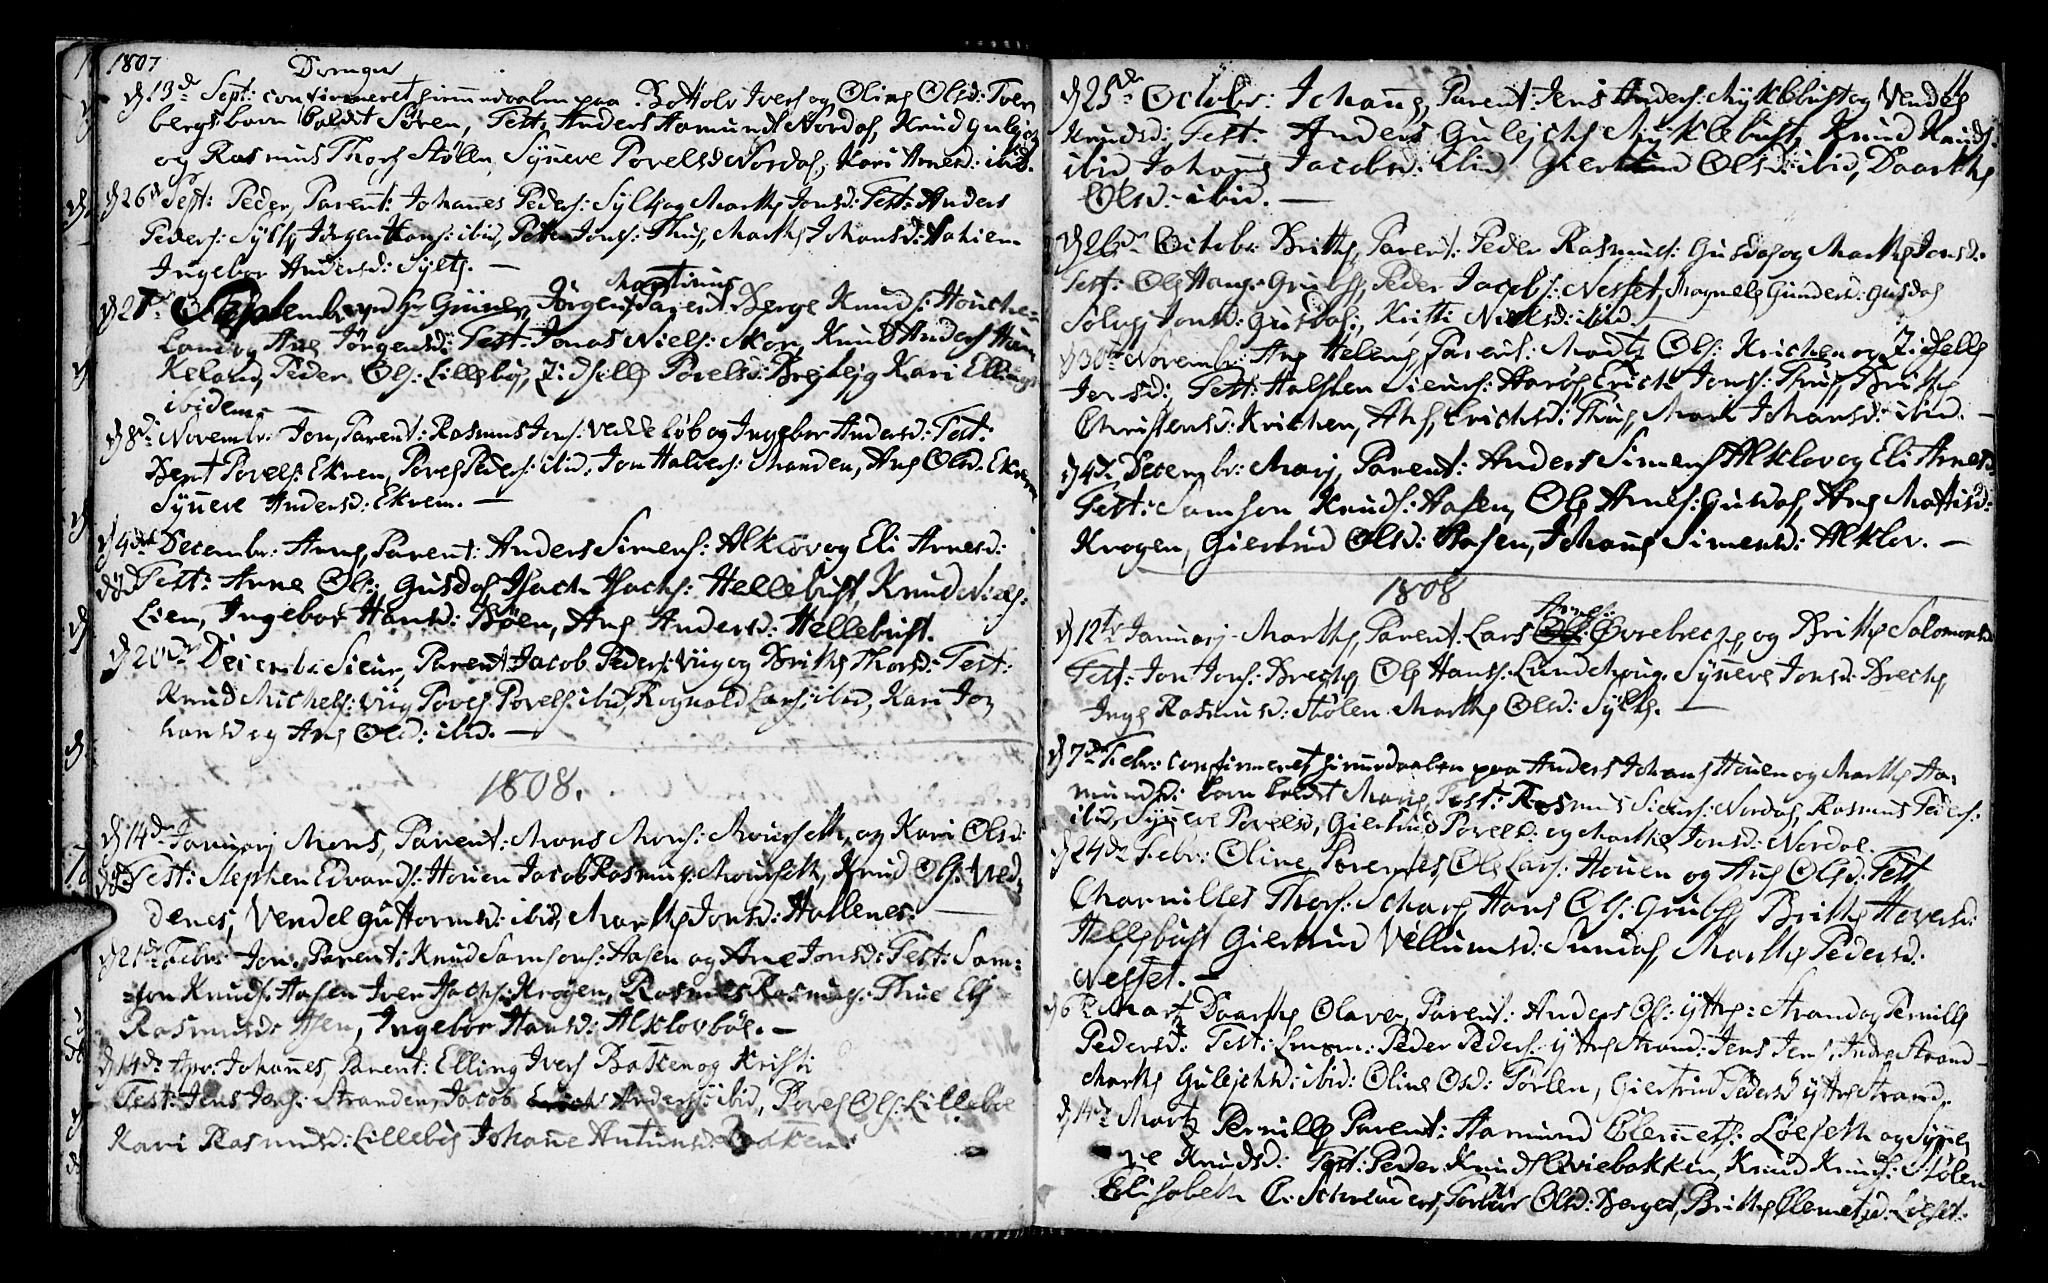 1807
Drenger
d 13d Sept: confirmeret hiemmedaaben paa Bottolv Ivers og Oline Olsd: Tver
bergs barn kaldet Sören, Test: Anders Aamunds Nordal, Knud
og Rasmus Thors Stölen, Syñeve Povelsd Nordal, Kari Arnesd: ibid.
d 26d Sept: Peder, Parent: Johañes Peders: Sylte og Marthe Jonsd: Test: Anders
Peders: Sylte, Jörgen Hans: ibid, Petter Jons: Thue, Marthe Johansd:
Ingebor Andersd: Sylte. —
Martinus
Jörgen Parent Berge Knuds: Housche-
land og Ane Jörgensd: Test: Jonas Niels: Mor, Knud Anders Haus
keland, Peder Ols: Lillebö, Zidselle Povelsd: Brejlejg Kari Ellings
ibidem. —
d 8d Novembr: Jon, Parent: Rasmus Jons: Veddelöb og Ingebor Andersd: Test:
Bent Povels: Ekren, Povel Peders: ibid, Jon Halvors: Manden, Ane Olsd: Ekrem
Syñeve Andersd: Ekrem. —
d 4de Decembr: Arne, Parent: Anders Simens: Alklov og Eli Arnesd:
Test: Arne Ols: Gusdal, Isach Isachs: Hellebust, Knud Niels:
Lien, Ingebor Hansd: Böen, Ane Andersd: Hellebust.
d 20de Decembr: Siver, Parent: Jacob Peders: Viig og Brithe Thorsd: Test:
Knud Michels: Viig Povel Povels: ibid, Rognald Lars: ibid, Kari Jo,
hansd og Ane Olsd: ibid. —
1808.
d 14de Januarj Mons, Parent: Mons Mons: Mourseth, og Kari Olsd:
Test: Stephen Edvards: Houen Jacob Rasmus: Mourseth, Knud Ols: Ved,
denes, Vendel Guttormsd: ibid, Marthe Jonsd: Hallenes: —
d 21de Febr: Jon, Parent: Knud Samsons: Aasen og Ane Jonsd: Test: Sam=
=son Knuds: Aasen Iver Isachs: Krogen, Rasmus Rasmus: Thue Eli
Rasmusd: Aasen, Ingebor Hansd: Alklovböe. —
d 14de Apr: Johañes, Parent: Elling Ivers Bakken og Kristi
Test: Jens Jens: Stranden, Jacob Anders: ibid, Povel Ols: Lilleböe
Kari Rasmusd: Lillebö Johañe Antunsd: Bakken:
11
d 25de Octobr: Johañe, Parent: Jens Anders: Myklebust og Vendel
Knudsd: Test: Anders Gulejchs Myklebust, Knud Knuds:
ibid Johañe Jacobsd: ibid Giertrud Olsd: ibid, Daarthe
Olsd: ibid. —
d 26de Octobr: Brithe, Parent: Peder Rasmus: Gusdal og Marthe Jonsd:
Test: Ole Hans: Grubse, Peder Jacobs: Nesset, Magnele Gundersd: Gusdal
Solvej Jonsd: Gusdal, Kitti Nielsd: ibid. —
d 30te Novembr: Ane Helene, Parent: Madtz Ols: Krichen og Zidselle
Jensd: Test: Halsten Siurs: Haröe, Erich Jons: Thue, Brithe
Christensd: Krichen, Ane Erichsd: Thue, Marit Johansd: ibid. —
d 4de Decembr: Marj, Parent: Anders Simens Alklov og Eli Arnesd:
Test: Samson Knuds: Aasen, Ole Arnes: Gusdal, Ane Mattisd:
Krogen, Giertrud Olsd: Aasen, Johañe Simensd: Alklov. —
1808
Arnes:
d 12te Januarj Marthe, Parent: Lars Öuvrebreche, og Brithe Salomonsd:
Test: Jon Jons: Breche, Ole Hans: Lundehoug, Syñeve Jonsd: Breche
Inge Rasmusd: Stölen Marthe Olsd: Sylte. —
d 7de Febr: confirmeret hiemmedaaben paa Anders Johans Houen og Marthe Aa-
mundsd: barn kaldet Marie, Test: Rasmus Siurs: Nordal, Rasmus Peders:
ibid, Syñeve Povelsd, Giertrud Povelsd: og Marthe Jonsd: Nordal.
d 24de Febr: Oline, Parentes, Ole Lars: Houen og Ane Olsd: Test
Charvilles Thors: Schare, Hans Ols: Grubse Brithe Haversd:
Hellebust Giertrud Villumsd: Sundal, Marthe Pedersd:
Nesset. —
d 6te Martz Daarthe Olave, Parent: Anders Ols: Yttre: Strand og Pernille
Pedersd: Test: Peder Peders: Yttre Strand: Jens Jens: Indre Strand—
Marthe Gulejchsd: ibid: Oline Osd: Törlen, Giertrud Pedersd Yttre Strand.
d 14de Martz Pernille, Parent: Aamund Clemets: Löeseth og Syñe,
ve Knudsd: Test: Peder Knuds Qviebakken, Knud Knuds: Stölen
Elisabeth C: Schreuders, Torber Olsd: Berget, Brithe Clemetsd: Löeset: